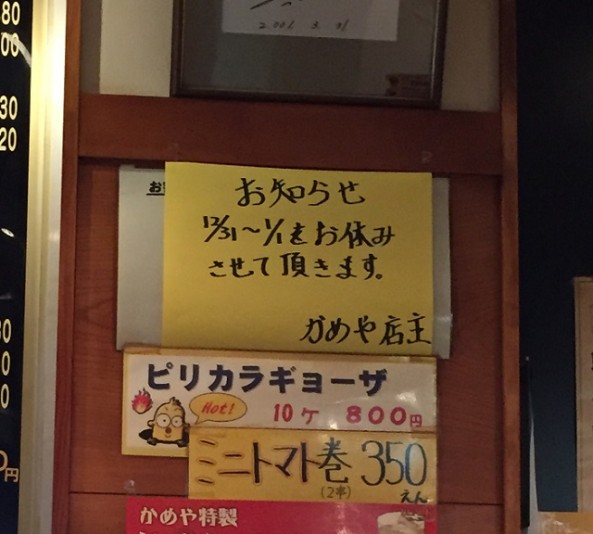 2001. 3. 31
80
00
30
20
お知らせ
12/31～1/1をお休み
させて頂きます。
かめや店主
ピリカラギョーザ
Hot!
10ケ 800円
ミニトマト巻 350
(2串) えん
かめや特製
30
0
0
0円